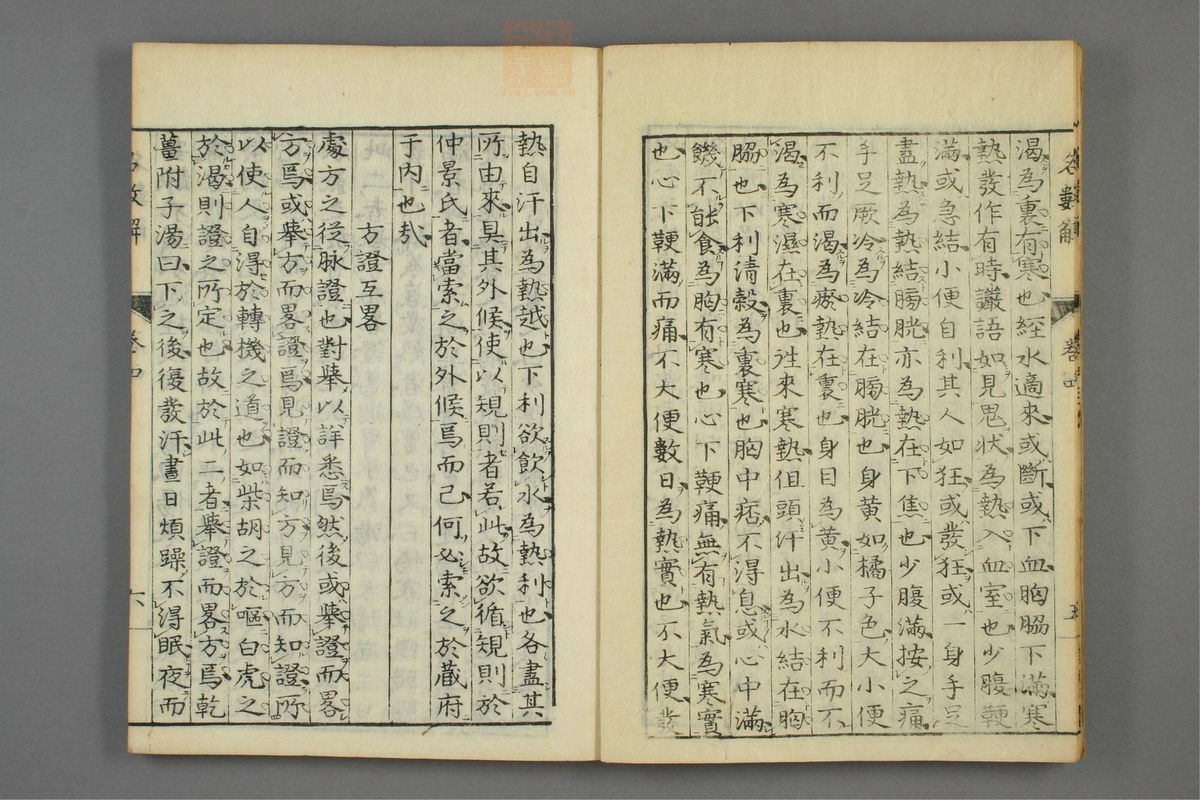 名數解
卷四
五
渴為裏有寒也經水適來或斷或下血胸脇下滿寒
熱發作有時讝語如見鬼狀為熱入血室也少腹鞕
滿或急結小便自利其人如狂或發狂或一身手足
盡熱為熱結膀胱亦為熱在下焦也少腹滿按之痛
手足厥冷為冷結在膀胱也身黃如橘子色大小便
不利而渴為瘀熱在裏也身目為黃小便不利而不
渴為寒濕在裏也往來寒熱但頭汗出為水結在胸
脇也下利清穀為裏寒也胸中痞不得息或心中滿
饑不能食為胸有寒也心下鞕痛無有熱氣為寒實
也心下鞕滿而痛不大便數日為熱實也不大便發
熱自汗出為熱越也下利欲飲水為熱利也各盡其
所由來具其外候使以規則者若此故欲循規則於
仲景氏者當索之於外候焉而已何必索之於藏府
于內也哉
方證互畧
處方之從脉證也對舉以詳悉焉然後或舉證而畧
方焉或舉方而畧證焉見證而知方見方而知證所
以使人自得於轉機之道也如柴胡之於嘔白虎之
於渴則證之所定也故於此二者舉證而畧方焉乾
薑附子湯曰下之後復發汗晝日煩躁不得眠夜而
名數解
卷四
六
zysj.com.cn